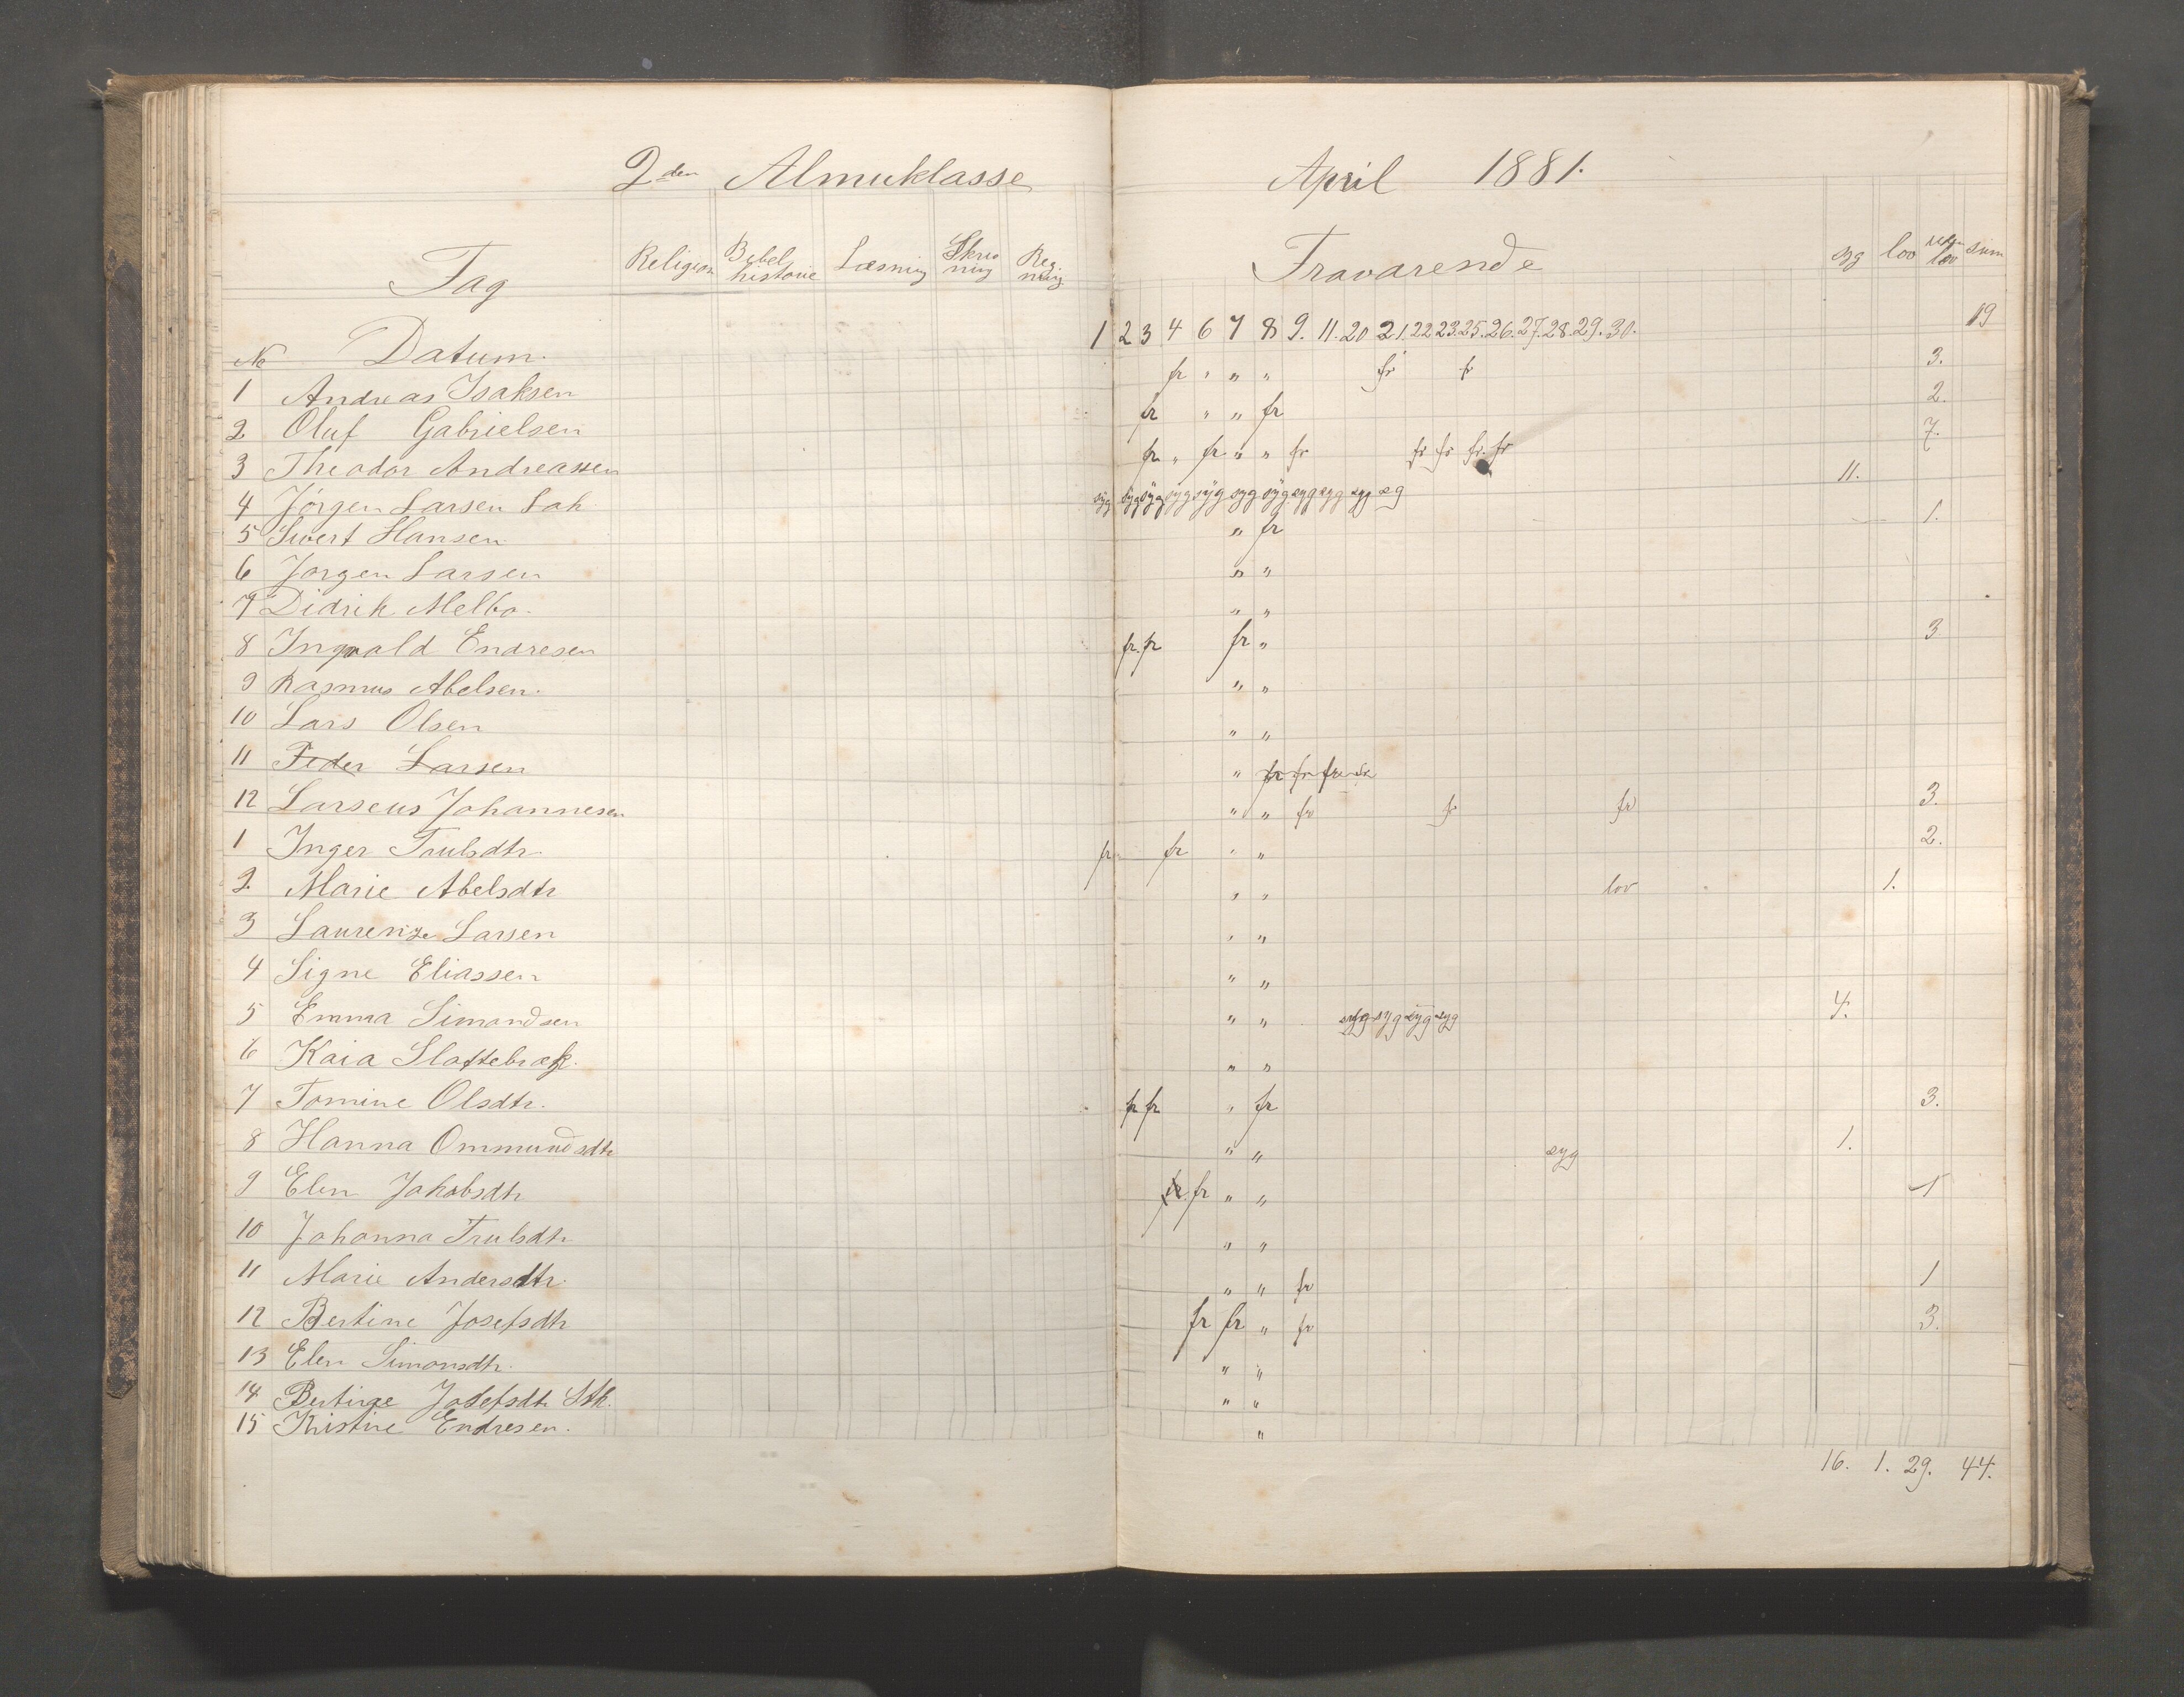 2den Almuklasse April 1881.
Fag Religion Bibel historie Læsning Skrivning Regning Fraværende syg lov uden lov sum
No Datum. 1 2 3 4 6 7 8 9. 11. 20 21. 22 23. 25. 26. 27. 28. 29. 30. 19
1 Andreas Isaksen fr " " " fr fr 3.
2 Oluf Gabrielsen fr " " fr 2.
3 Theodor Andreassen fr " fr " " fr fr fr fr. fr 7.
4 Jörgen Larsen Lah syg syg syg syg syg syg syg syg syg syg syg 11.
5 Sivert Hansen " fr 1.
6 Jörgen Larsen " "
7 Didrik Melbo. " "
8 Ingvald Endresen fr. fr fr " 3
9 Rasmus Abelsen. " "
10 Lars Olsen " "
11 Peder Larsen " fr fr fr fr
12 Larseus Johannesen " " fr fr fr 3.
1 Inger Trulsdtr fr fr " " 2.
2. Marie Abelsdtr " " lov 1.
3 Laurenze Larsen " "
4 Signe Eliassen " "
5 Emma Simondsen " " syg syg syg syg 4.
6 Kaia Slottebræk. " "
7 Tomine Olsdtr. fr fr " fr 3.
8 Hanna Ommundsdtr " " syg 1.
9 Elen Jakobsdtr fr fr " " 1
10 Johanna Trulsdtr " "
11 Marie Andersdtr. " " fr 1
12 Bertine Josefsdtr fr fr " fr 3.
13 Elen Simonsdtr. " "
14 Bertine Josefsdtr Stk. " "
15 Kristine Endresen. "
16. 1. 29. 44.